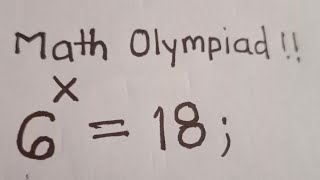 Math Olympiad !!
6^x = 18;